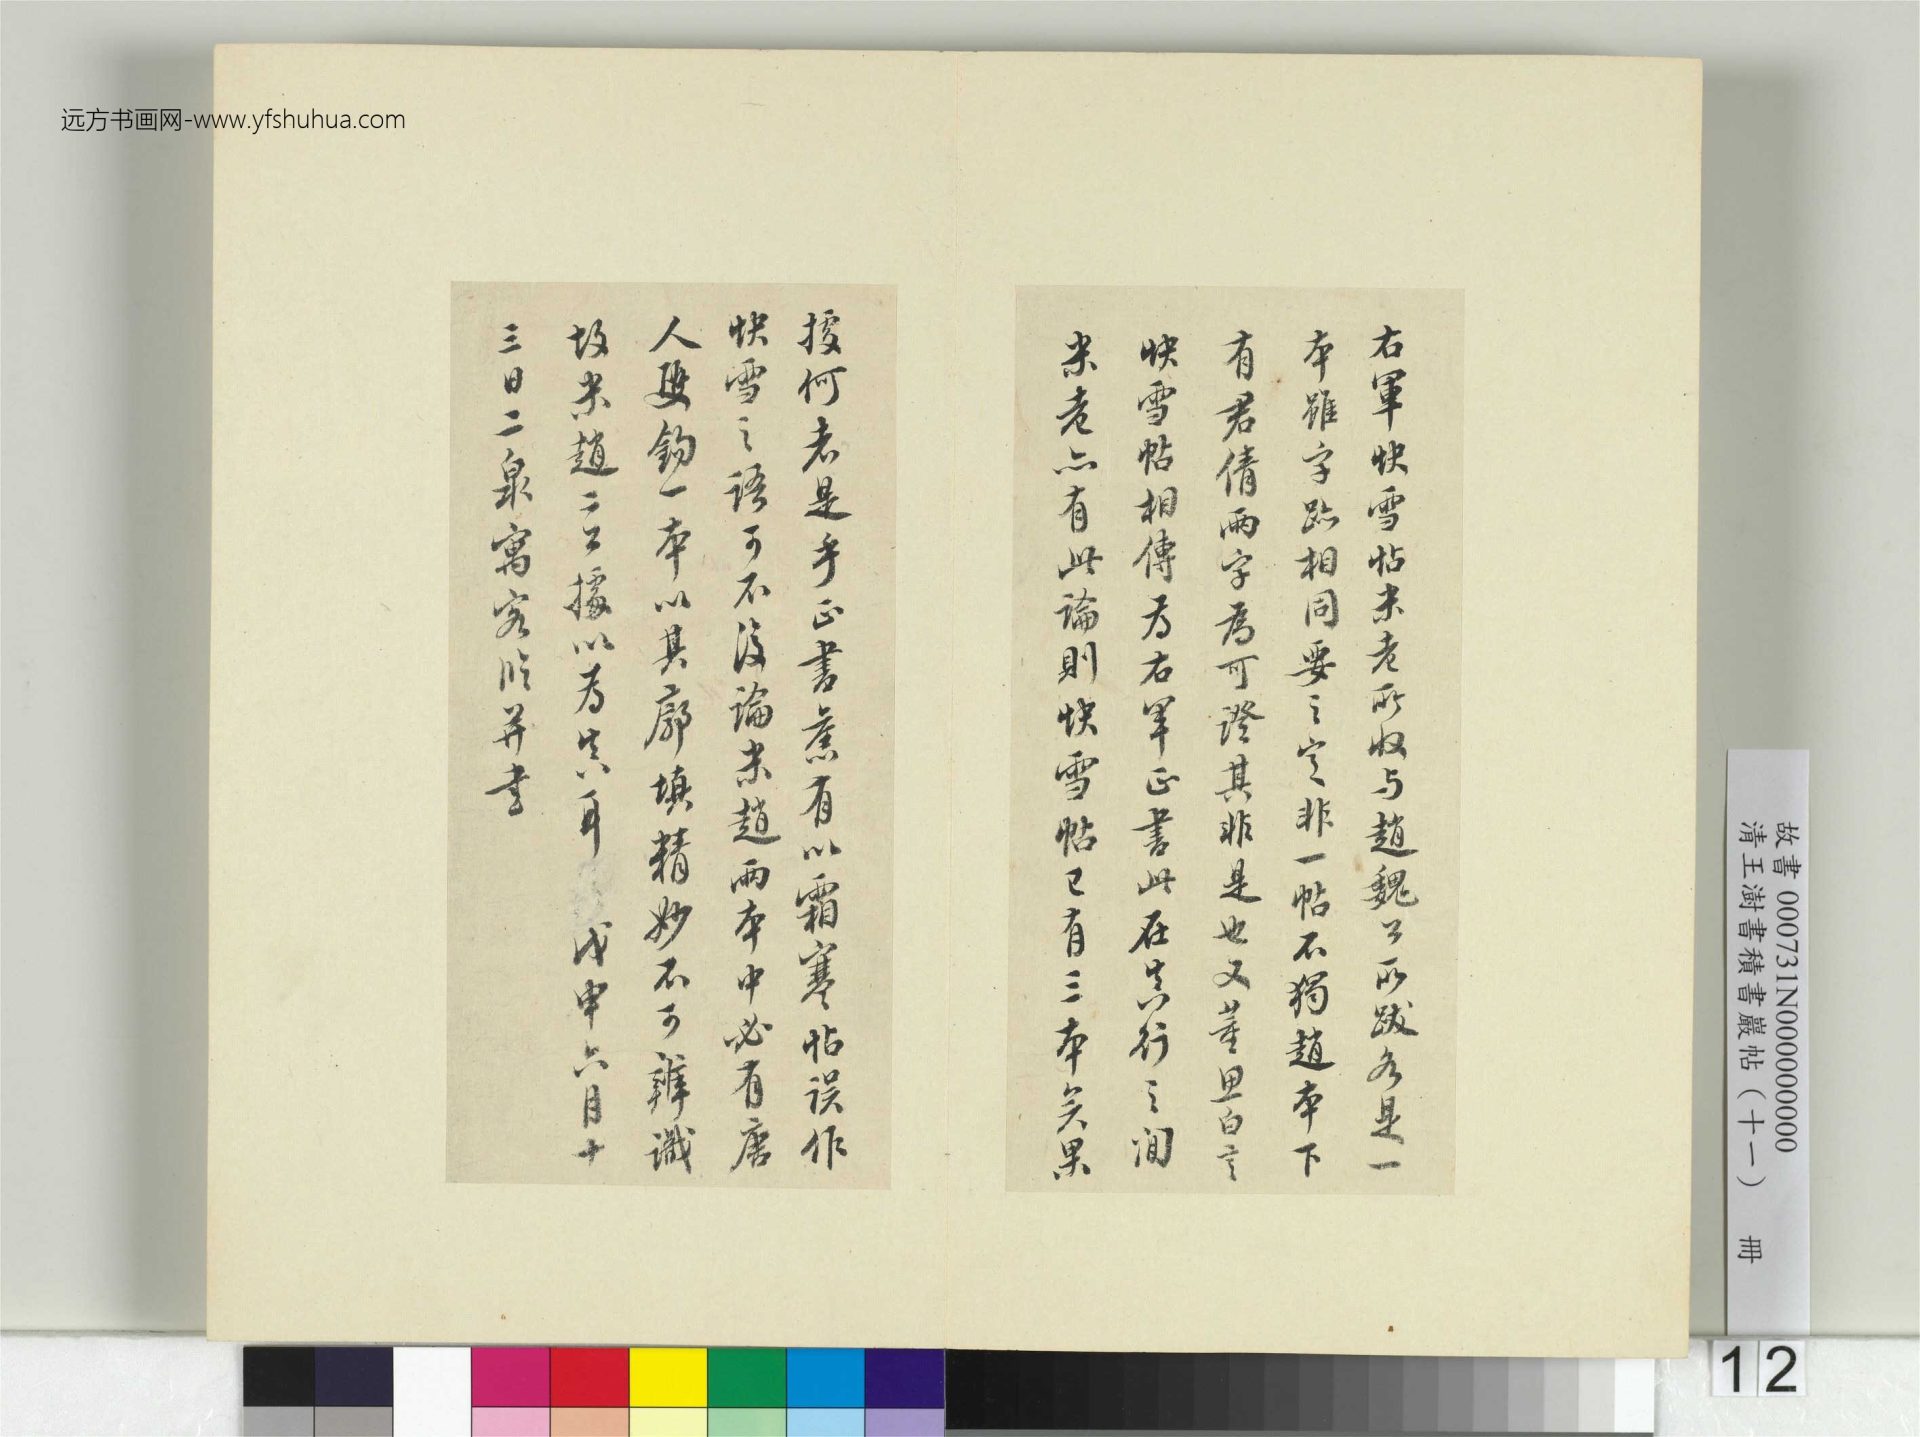 远方书画网-www.yfshuhua.com
右軍快雪帖米老所收与趙魏公所跋各是一
本雖字跡相同要之定非一帖不獨趙本下
有君倩兩字為可證其非是也又董思白言
快雪帖相傳為右軍正書此在真行之間
米老亦有此論則快雪帖已有三本矣果
援何者是乎正書蕉有以霜寒帖误作
快雪之語可不復論米趙兩本中必有唐
人雙鉤一本以其廓填精妙不可辨識
故米趙二公據以為真耳 戊申六月十
三日二泉寓客臨并書
故書000731N000000000
清王澍書積書巖帖（十一） 冊
12